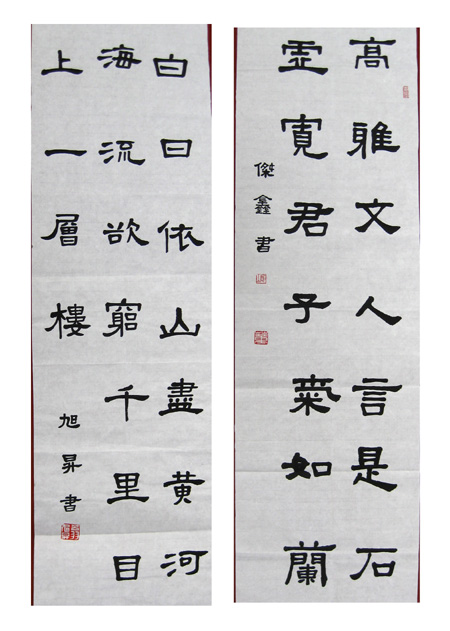 高雅文人言是石
虛寬君子氣如蘭
傑鑫書
白日依山盡黃河
海流欲窮千里目
上一層樓
旭昇書